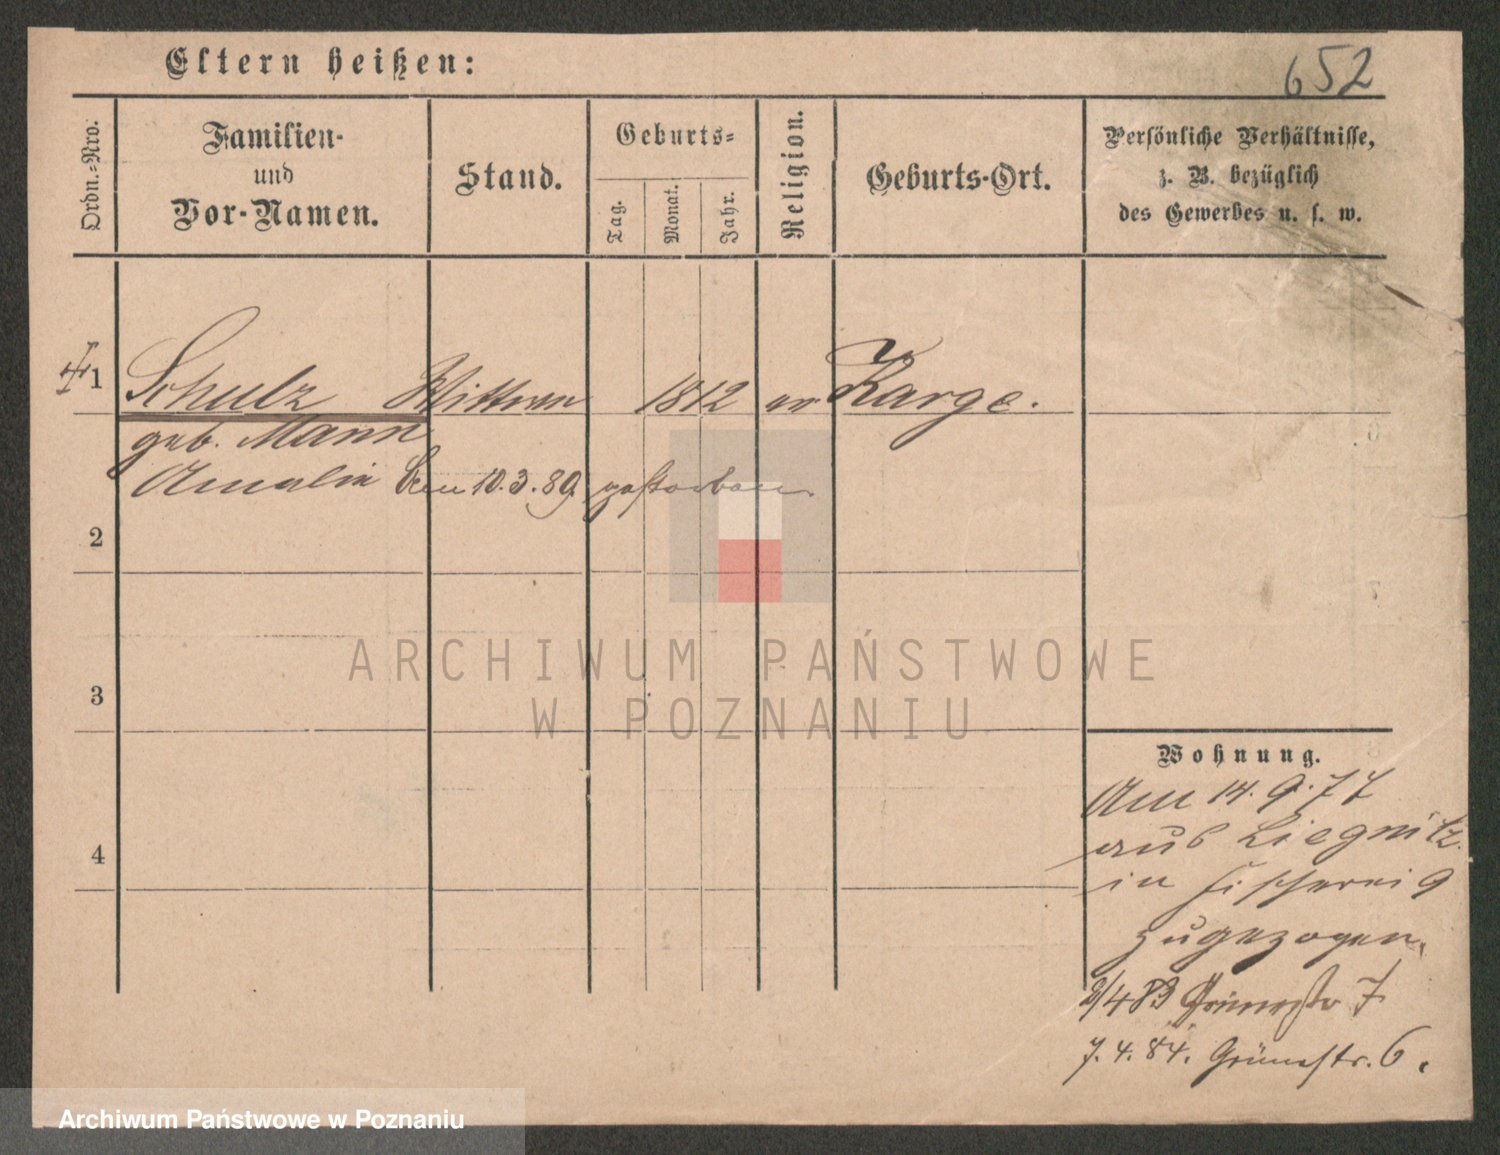 Eltern heißen:
652
Ordn.-Nro.
Familien-
und
Vor-Namen.
Stand.
Geburts-
Tag.
Monat.
Jahr.
Religion.
Geburts-Ort.
Persönliche Verhältnisse,
z. B. bezüglich
des Gewerbes u. s. w.
1
Schulz Wittwe 1812 ev Karge.
geb. Mann
Amalie den 10.3.89 gestorben
2
3
4
Wohnung.
Am 14.9.77
aus Liegnitz
in Fischerei 9
zugezogen.
2/4 83 Grünestr 7
7.4.84. Grünestr. 6.
ARCHIWUM PAŃSTWOWE
W POZNANIU
Archiwum Państwowe w Poznaniu